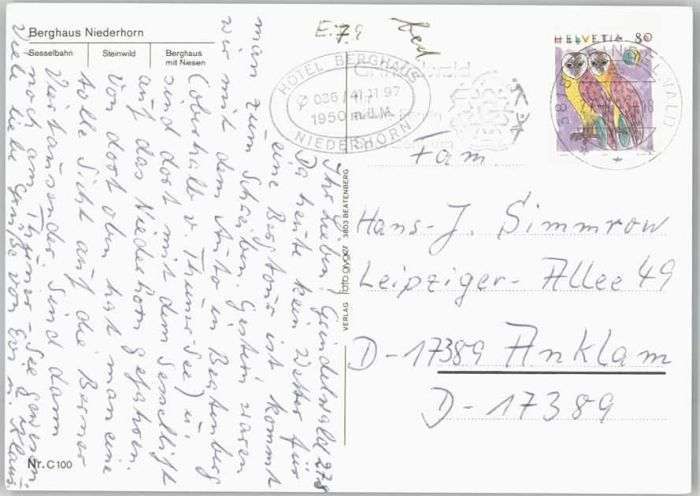 Berghaus Niederhorn
Sesselbahn
Steinwild
Berghaus
mit Niesen
Ihr Lieben, Grindelwald 27.8
Da heute kein Wetter für
eine Bergtour ist kommt
man zum Schreiben. Gestern waren
wir mit dem Auto in Beatenberg
(oberhalb v. Thuner See) u.
sind dort mit dem Sessellift
auf das Niederhorn gefahren.
Von dort oben hat man eine
tolle Sicht auf die Berner
Viertausender. Sind dann
noch am Thuner-See gewesen.
Viele liebe Grüße von Evi u. Klaus
Nr. C 100
VERLAG foto gyger 3803 BEATENBERG
E: 7.9
HOTEL BERGHAUS
036/41 11 97
1950 m.ü.M.
NIEDERHORN
HELVETIA 80
3818 GRINDELWALD
Fam
Hans-J. Simmrow
Leipziger-Allee 49
D-17389 Anklam
D-17389